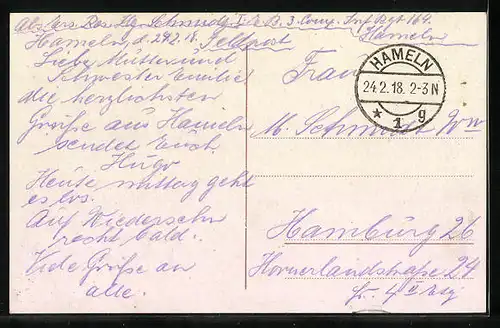 Abs. Ers. Res. Hg. Schmidt I. E. B. 3. Comp. Inf. Rgt. 164.
Hameln, d. 24.2.18. Feldpost Hameln
Liebe Mutter und
Schwester Emilie!
Die herzlichsten
Grüße aus Hameln
sendet Euch
Hugo
Heute mittag geht
es los.
Auf Wiedersehn
recht bald.
Viele Grüße an
alle.
HAMELN
24.2.18. 2-3 N
* 1 g
Frau
M. Schmidt Ww
Hamburg 26
Hornerlandstraße 24